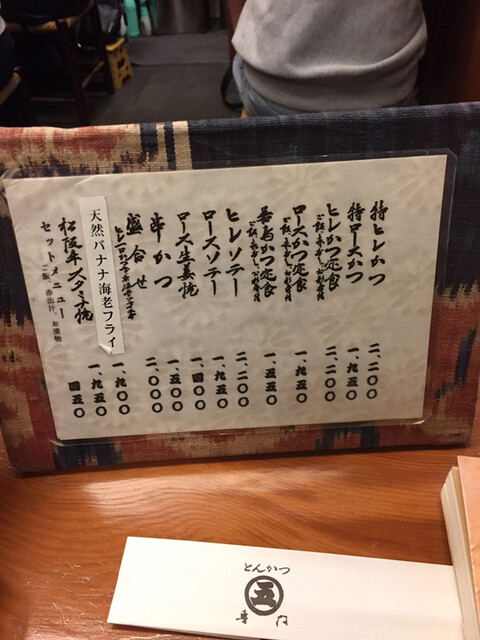 特ヒレかつ 二、二〇〇
特ロースかつ 一、九五〇
ヒレかつ定食 二、二〇〇
ご飯、赤出汁、お漬物付
ロースかつ定食 一、九五〇
ご飯、赤出汁、お漬物付
若鳥かつ定食 一、五五〇
ご飯、赤出汁、お漬物付
ヒレソテー 二、二〇〇
ロースソテー 一、九五〇
ロース生姜焼 一、四〇〇
串かつ 一、五〇〇
盛合せ 二、〇〇〇
天然バナナ海老フライ 一、九〇〇
松阪牛スタミナ焼 一、九五〇
セットメニュー 四五〇
ご飯、赤出汁、お漬物
とんかつ
五
専門